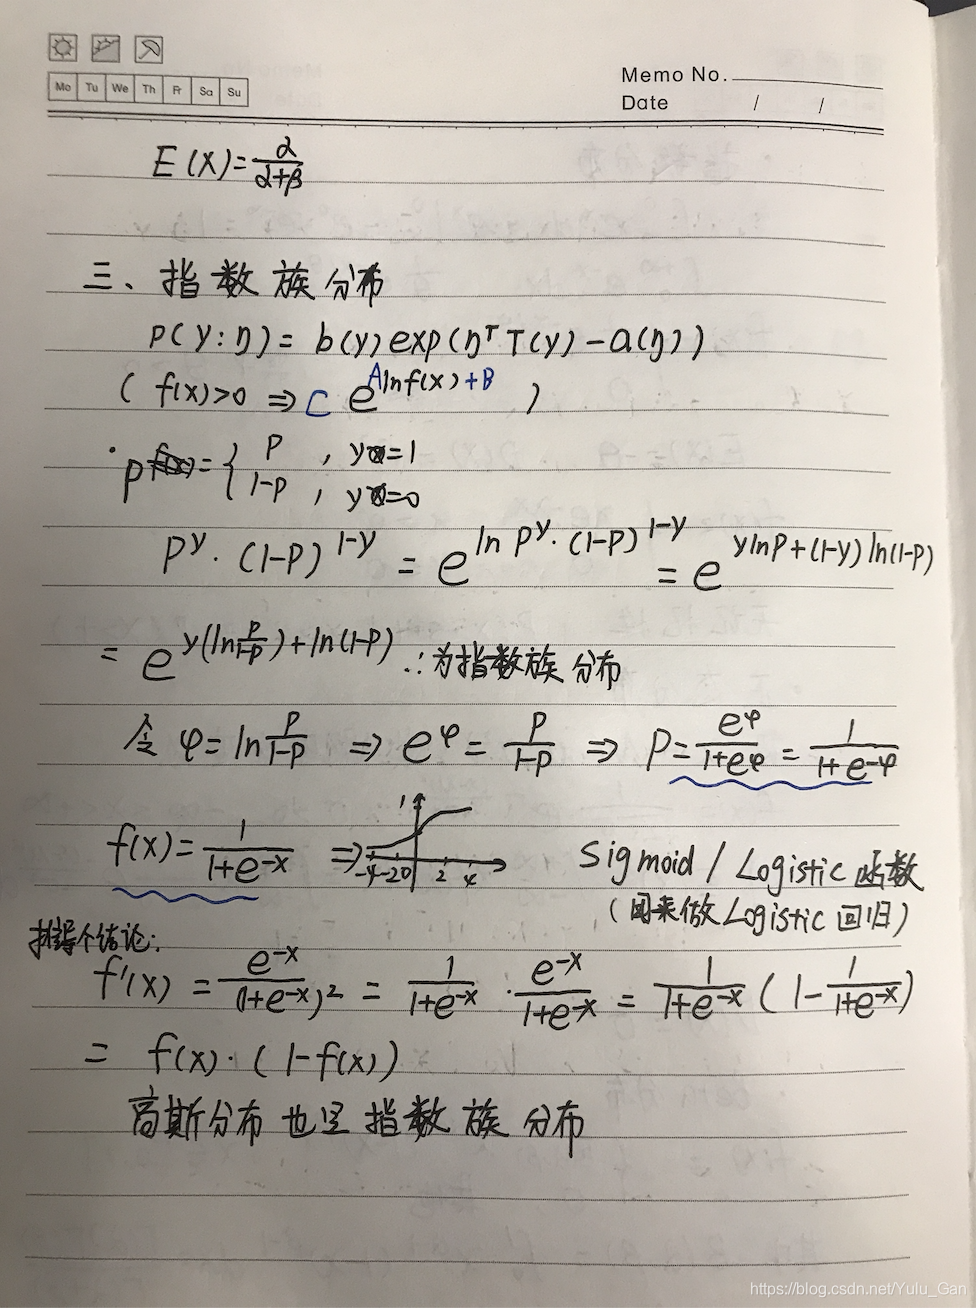 Mo Tu We Th Fr Sa Su
Memo No.
Date / /
E(X)=α/(α+β)
三、指数族分布
P(y:η)=b(y)exp(η^T T(y)-a(η))
(f(x)>0 ⇒ C e^(A ln f(x)+B))
· P = { P , y=1
1-P , y=0
P^y·(1-P)^(1-y) = e^(ln P^y·(1-P)^(1-y)) = e^(y ln P+(1-y) ln(1-P))
= e^(y(ln P/(1-P))+ln(1-P)) ∴为指数族分布
令 φ=ln P/(1-P) ⇒ e^φ = P/(1-P) ⇒ P= e^φ/(1+e^φ) = 1/(1+e^-φ)
f(x)= 1/(1+e^-x) ⇒ 1 -4 -2 0 2 4 Sigmoid / Logistic 函数
(回来做 Logistic 回归)
推导个结论:
f'(x) = e^-x/(1+e^-x)^2 = 1/(1+e^-x) · e^-x/(1+e^-x) = 1/(1+e^-x) (1- 1/(1+e^-x))
= f(x)·(1-f(x))
高斯分布也是指数族分布
https://blog.csdn.net/Yulu_Gan